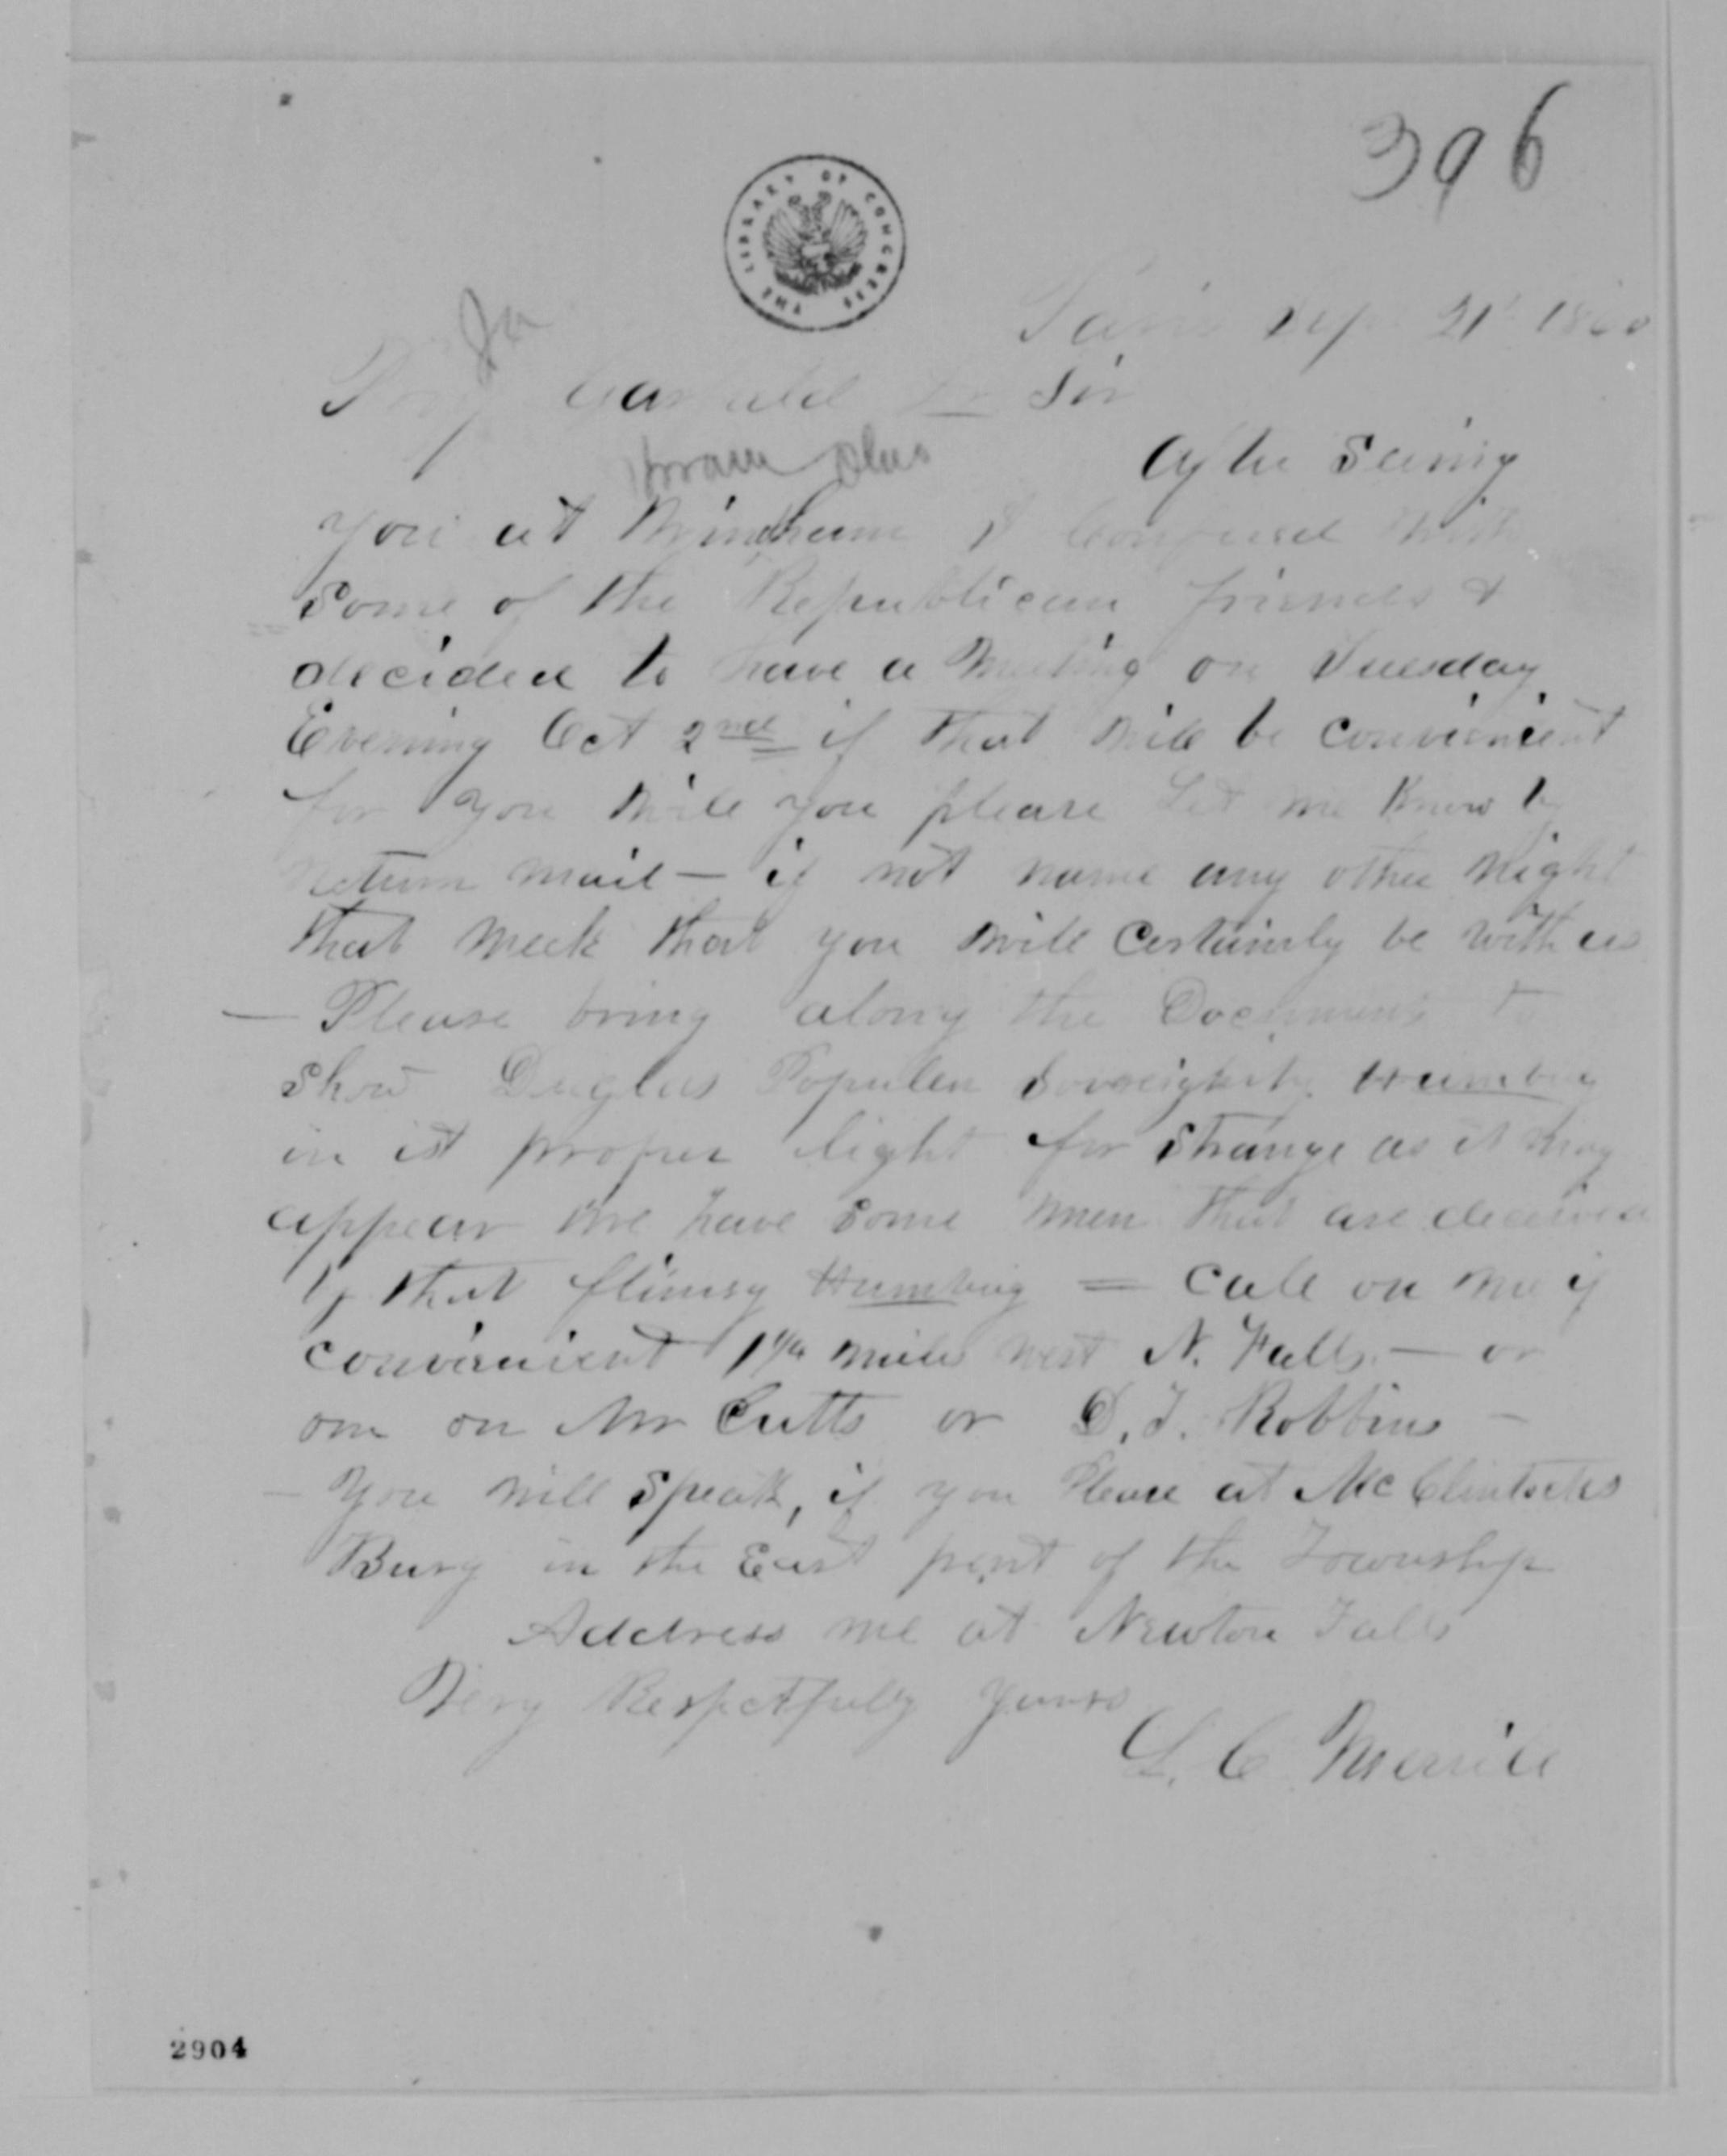 396
THE LIBRARY OF CONGRESS
Paris Sep 21st 1860
Prof Garfield Dr Sir
Hiram Ohio
After Seeing
you at Windham I Confered with
Some of the Republican friends &
decided to have a Meeting on Tuesday
Evening Oct 2nd if that will be convienient
for you will you please Let me Know by
return mail — if not name any other Night
that week that you will Certainly be with us
— Please bring along the Documents to
Show Duglas Populer Sovreignity Humbug
in it proper light for Strange as it may
appear we have some men that are deceived
by that flimsy Humbug = Call on me if
convienient 1 1/4 miles west N. Falls — or
on Mr Cutts or D. T. Robbins —
— You will Speak, if you Please at McClintocks
Burg in the East part of the Township
Address me at Newton Falls
Very Respectfully yours
L. C. Merrill
2904